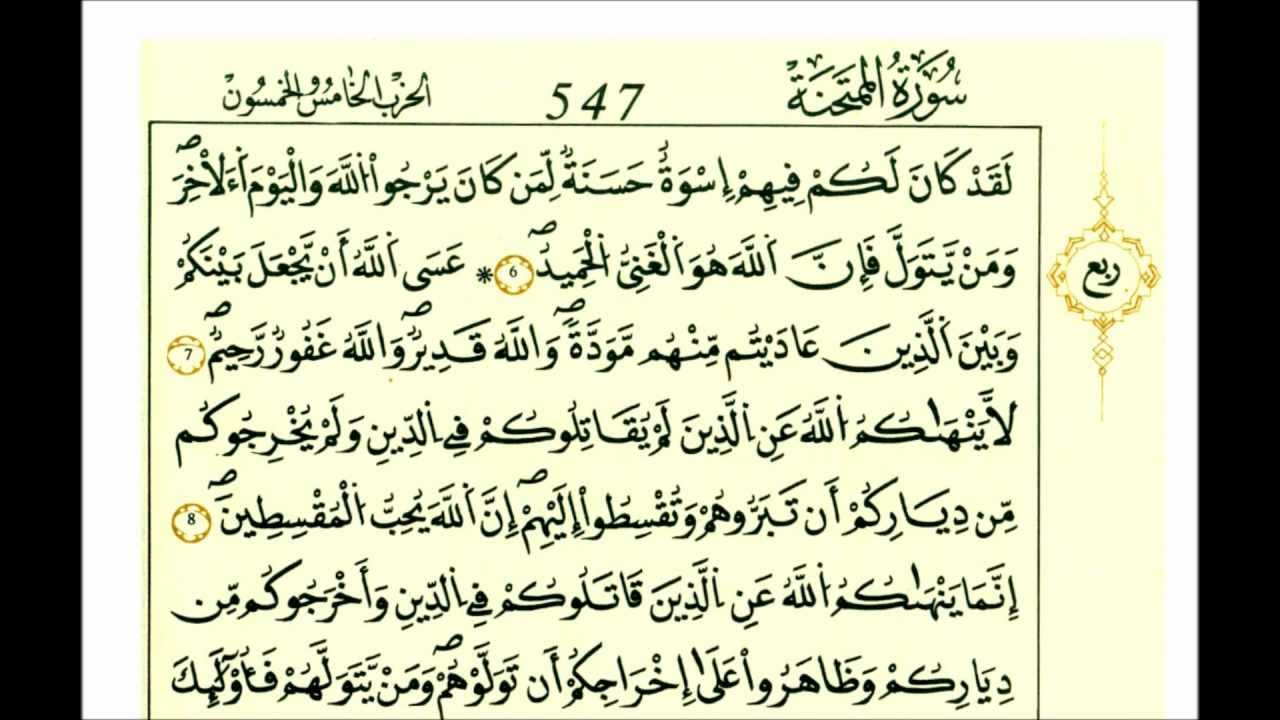 سُورَةُ المُمْتَحَنَةِ
547
الحزب الخامس والخمسون
لَقَدْ كَانَ لَكُمْ فِيهِمْ إِسْوَةٌ حَسَنَةٌ لِّمَن كَانَ يَرْجُواْ اللَّهَ وَالْيَوْمَ اَءَلاْخِرَ
وَمَنْ يَّتَوَلَّ فَإِنَّ اَللَّهَ هُوَ اَلْغَنِيُّ الْحَمِيدُ 6 * عَسَى اَللَّهُ أَنْ يَّجْعَلَ بَيْنَكُمْ
ربع
وَبَيْنَ اَلَّذِينَ عَادَيْتُم مِّنْهُم مَّوَدَّةً وَاللَّهُ قَدِيرٌ وَاللَّهُ غَفُورٌ رَّحِيمٌ 7
لاَّ يَنْهَىٰكُمُ اُللَّهُ عَنِ اِلَّذِينَ لَمْ يُقَاتِلُوكُمْ فِي اِلدِّينِ وَلَمْ يُخْرِجُوكُم
مِّن دِيَارِكُمْ أَن تَبَرُّوهُمْ وَتُقْسِطُواْ إِلَيْهِمْ إِنَّ اَللَّهَ يُحِبُّ اُلْمُقْسِطِينَ 8
إِنَّمَا يَنْهَىٰكُمُ اُللَّهُ عَنِ اِلَّذِينَ قَاتَلُوكُمْ فِي اِلدِّينِ وَأَخْرَجُوكُم مِّن
دِيَارِكُمْ وَظَاهَرُواْ عَلَىٰ إِخْرَاجِكُمْ أَن تَوَلَّوْهُمْ وَمَنْ يَّتَوَلَّهُمْ فَأُوْلَٰٓئِكَ